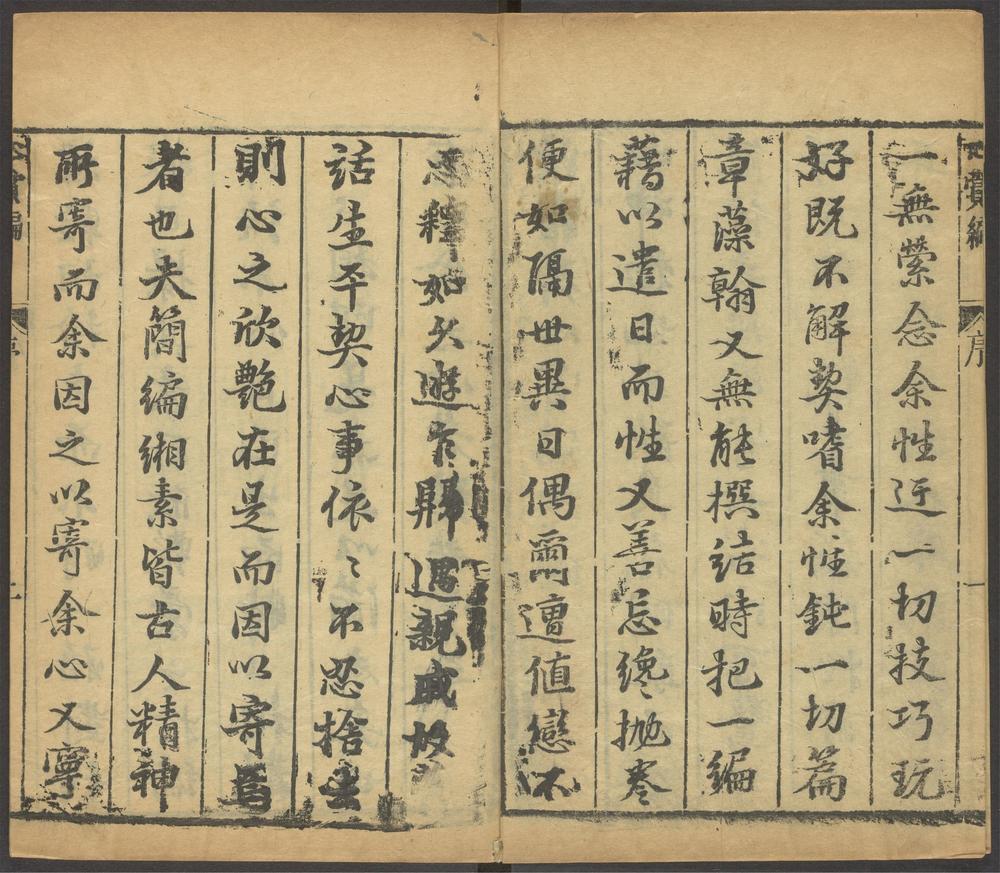 賞編 序 一
一無縈念余性迂一切技巧玩
好既不解契嗜余性鈍一切篇
章藻翰又無能撰結時把一編
藉以遣日而性又善忘纔拋卷
便如隔世異日偶爾遭值戀不
忍釋如久遊乍歸遇親戚故
話生平契心事依〻不忍捨去
則心之欣艷在是而因以寄焉
者也夫簡編緗素皆古人精神
所寄而余因之以寄余心又寧
賞編